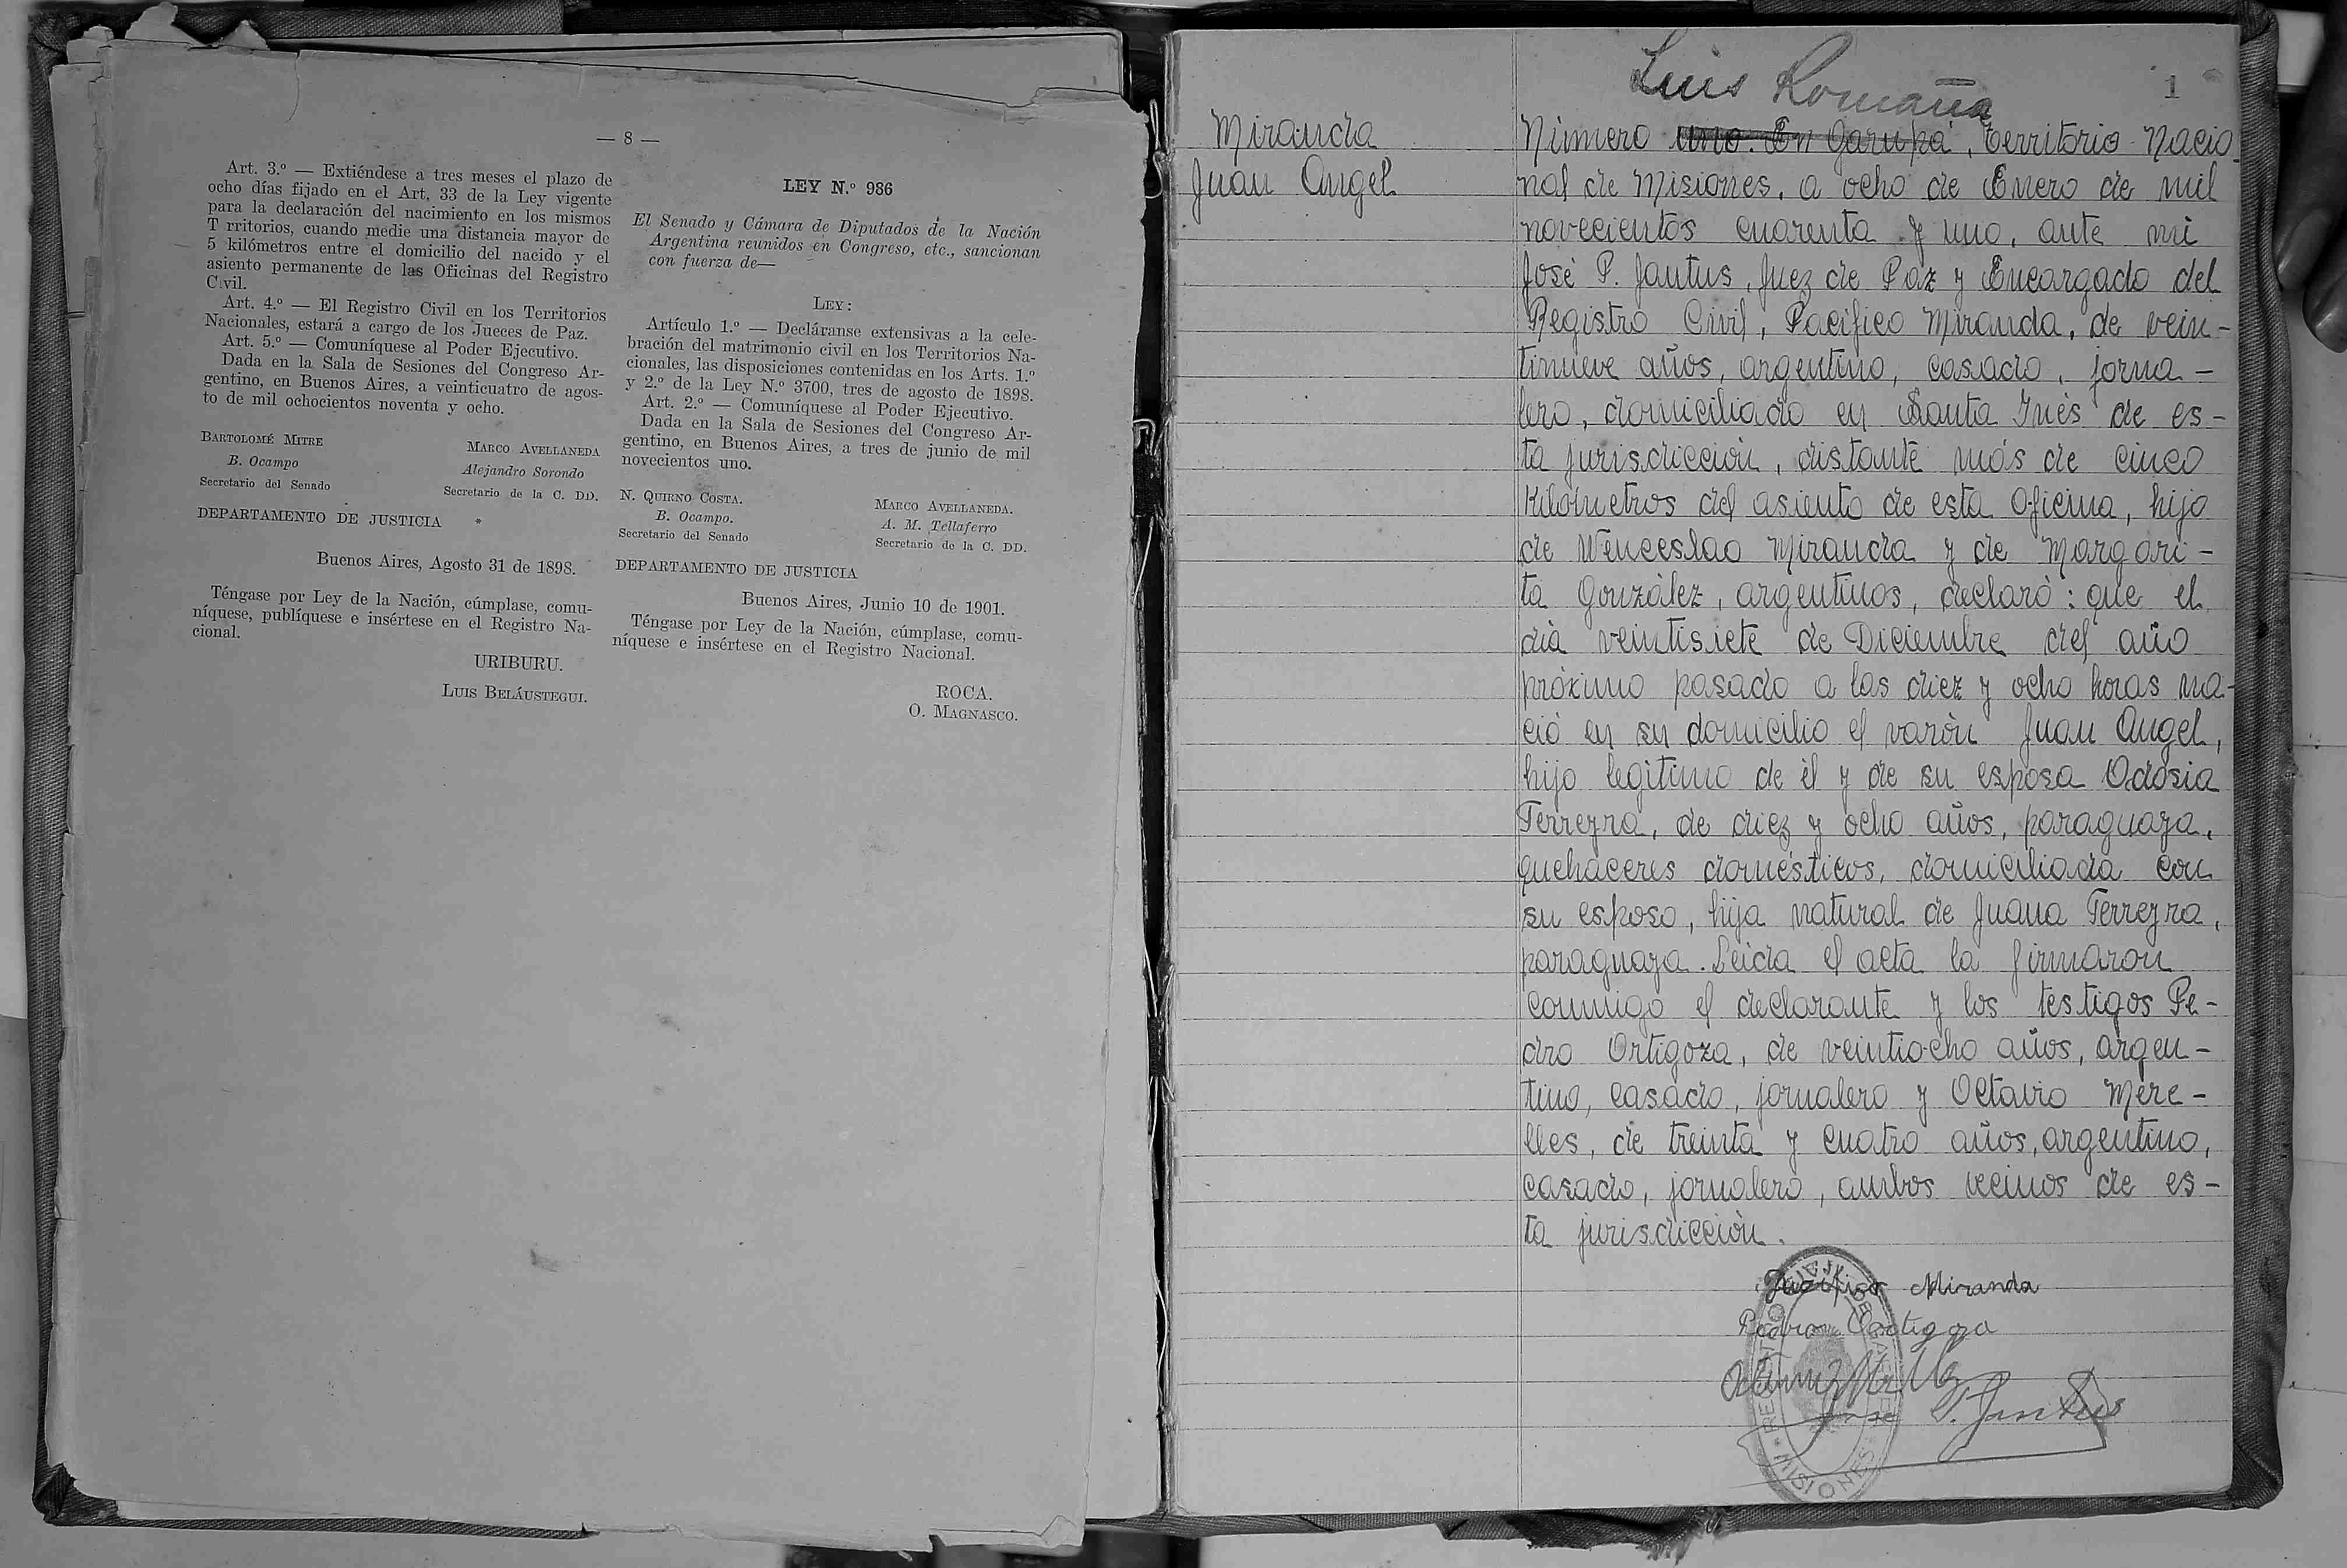 — 8 —
Art. 3.º — Extiéndese a tres meses el plazo de
ocho días fijado en el Art, 33 de la Ley vigente
para la declaración del nacimiento en los mismos
T rritorios, cuando medie una distancia mayor de
5 kilómetros entre el domicilio del nacido y el
asiento permanente de las Oficinas del Registro
Civil.
Art. 4.º — El Registro Civil en los Territorios
Nacionales, estará a cargo de los Jueces de Paz.
Art. 5.º — Comuníquese al Poder Ejecutivo.
Dada en la Sala de Sesiones del Congreso Ar-
gentino, en Buenos Aires, a veinticuatro de agos-
to de mil ochocientos noventa y ocho.
BARTOLOMÉ MITRE
MARCO AVELLANEDA
B. Ocampo
Alejandro Sorondo
Secretario del Senado
Secretario de la C. DD.
DEPARTAMENTO DE JUSTICIA
Buenos Aires, Agosto 31 de 1898.
Téngase por Ley de la Nación, cúmplase, comu-
níquese, publíquese e insértese en el Registro Na-
cional.
URIBURU.
LUIS BELÁUSTEGUI.
LEY N.º 986
El Senado y Cámara de Diputados de la Nación
Argentina reunidos en Congreso, etc., sancionan
con fuerza de—
LEY:
Artículo 1.º — Decláranse extensivas a la cele-
bración del matrimonio civil en los Territorios Na-
cionales, las disposiciones contenidas en los Arts. 1.º
y 2.º de la Ley N.º 3700, tres de agosto de 1898.
Art. 2.º — Comuníquese al Poder Ejecutivo.
Dada en la Sala de Sesiones del Congreso Ar-
gentino, en Buenos Aires, a tres de junio de mil
novecientos uno.
N. QUIRNO COSTA.
MARCO AVELLANEDA.
B. Ocampo.
A. M. Tellaferro
Secretario del Senado
Secretario de la C. DD.
DEPARTAMENTO DE JUSTICIA
Buenos Aires, Junio 10 de 1901.
Téngase por Ley de la Nación, cúmplase, comu-
níquese e insértese en el Registro Nacional.
ROCA.
O. MAGNASCO.
Luis Romaña
1
Miranda
Juan Angel
Número uno. En Garupá, Territorio Nacio-
nal de Misiones, a ocho de Enero de mil
novecientos cuarenta y uno, ante mi
José P. Jantus, Juez de Paz y Encargado del
Registro Civil, Pacífico Miranda, de vein-
tinueve años, argentino, casado, jorna-
lero, domiciliado en Santa Inés de es-
ta jurisdicción, distante más de cinco
kilómetros del asiento de esta Oficina, hijo
de Wenceslao Miranda y de Margari-
ta González, argentinos, declaró: que el
día veintisiete de Diciembre del año
próximo pasado a las diez y ocho horas na-
ció en su domicilio el varón Juan Angel,
hijo legitimo de él y de su esposa Odosia
Ferreyra, de diez y ocho años, paraguaya,
quehaceres domésticos, domiciliada con
su esposo, hija natural de Juana Ferreyra,
paraguaya. Leida el acta la firmaron
conmigo el declarante y los testigos Pe-
dro Ortigoza, de veintiocho años, argen-
tino, casado, jornalero y Octavio Mere-
lles, de treinta y cuatro años, argentino,
casado, jornalero, ambos vecinos de es-
ta jurisdicción.
Pacifico Miranda
Pedro Ortigoza
Jose P. Jantus
MISIONES